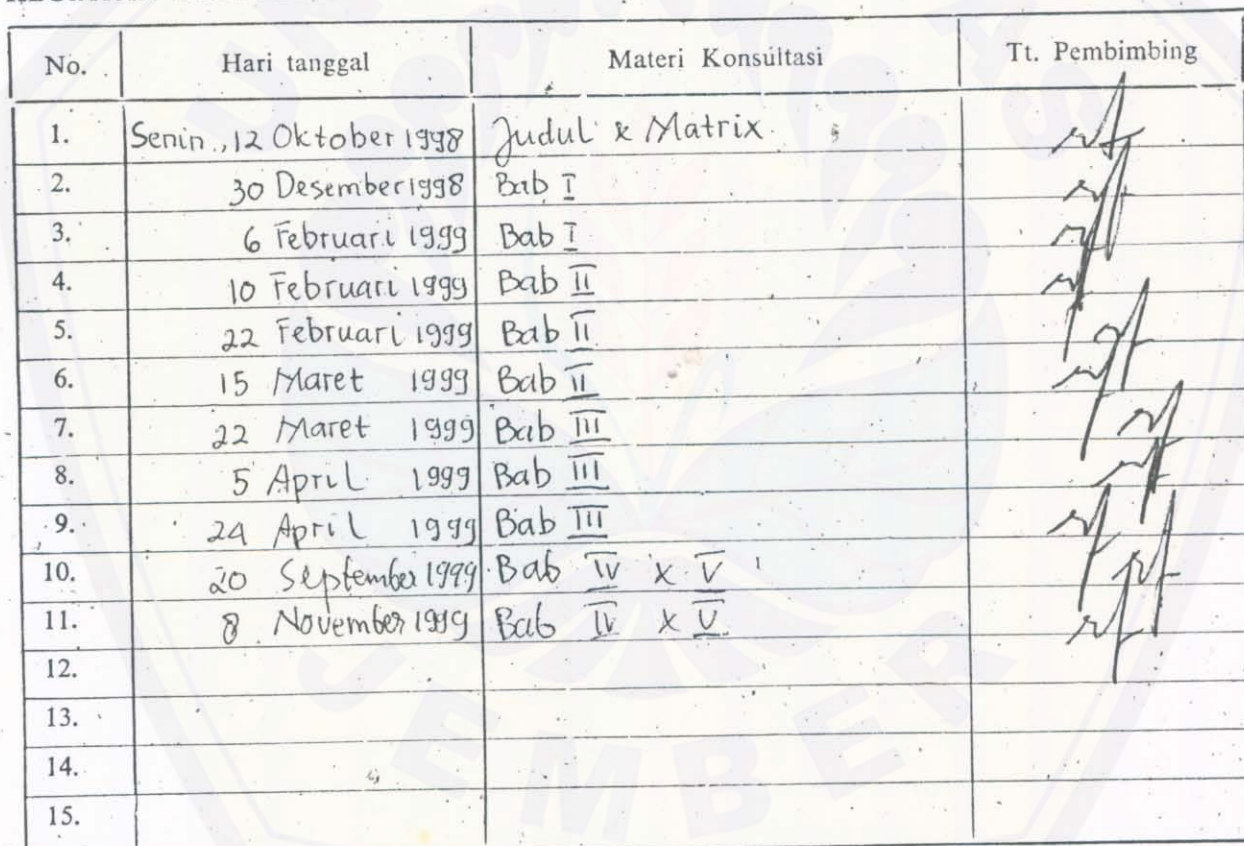 No. Hari tanggal Materi Konsultasi Tt. Pembimbing
1. Senin, 12 Oktober 1998 Judul & Matrix
2. 30 Desember 1998 Bab I
3. 6 Februari 1999 Bab I
4. 10 Februari 1999 Bab II
5. 22 Februari 1999 Bab II
6. 15 Maret 1999 Bab II
7. 22 Maret 1999 Bab III
8. 5 April 1999 Bab III
9. 24 April 1999 Bab III
10. 20 September 1999 Bab IV & V
11. 8 November 1999 Bab IV & V
12.
13.
14.
15.
JEMBER